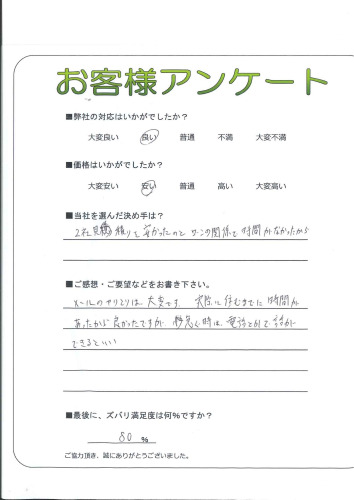 お客様アンケート
■弊社の対応はいかがでしたか？
大変良い 良い 普通 不満 大変不満
■価格はいかがでしたか？
大変安い 安い 普通 高い 大変高い
■当社を選んだ決め手は？
2社見積りで安かったのと の関係で時間がなかったから
■ご感想・ご要望などをお書き下さい。
メールのやりとりは大変です。実際に住むまでに時間が
あったから良かったですが、緊急時は、電話とかで話が
できるといい
■最後に、ズバリ満足度は何％ですか？
80 %
ご協力頂き、誠にありがとうございました。